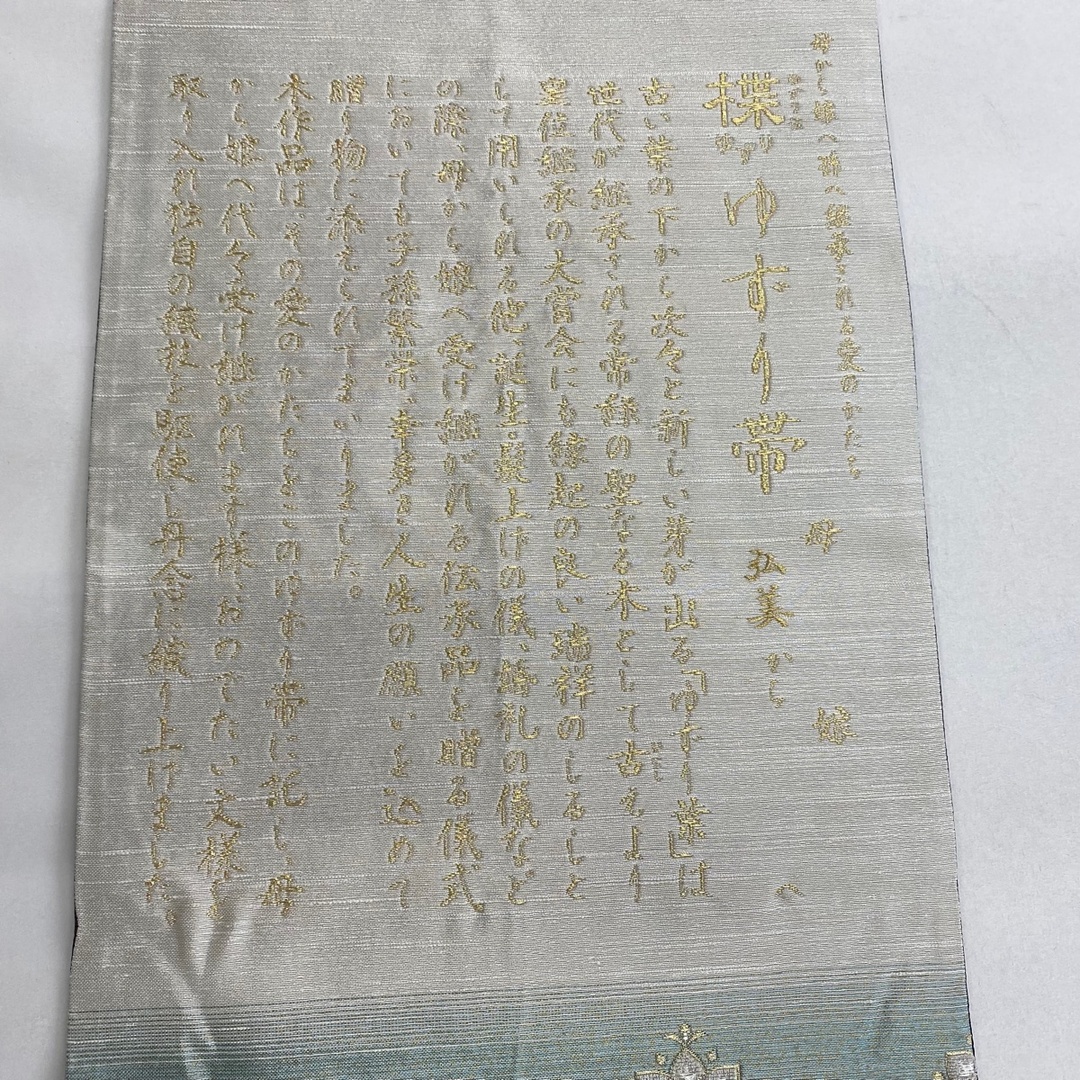 母から娘へ娘へ継承される愛のかたち
楪ゆずり帯
母 弘美から 娘 へ
古い葉の下から次々と新しい芽が出る「ゆずり葉」は
世代が継承される常緑の聖なる木として古えより
皇位継承の大嘗会にも縁起の良い瑞祥のしるしと
して用いられる他、誕生・髪上げの儀、婚礼の儀など
の際、母から娘へ受け継がれる伝承品を贈る儀式
においても子孫繁栄、幸多き人生の願いを込めて
贈り物に添えられてまいりました。
本作品は、その愛のかたちをこのゆずり帯に託し、母
から娘へ代々受け継がれます様、おめでたい文様を
取り入れ独自の織技を駆使し丹念に織り上げました。